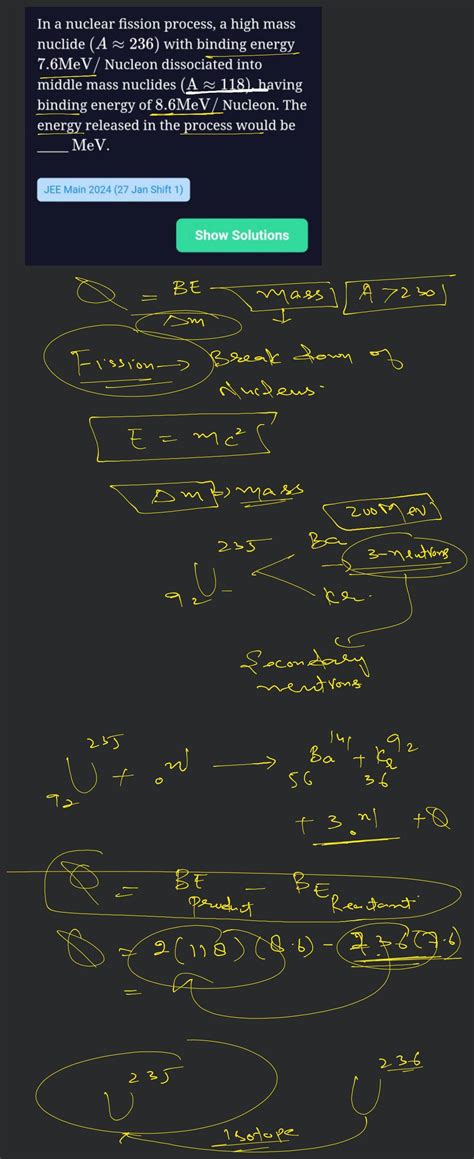 In a nuclear fission process, a high mass
nuclide (A ≈ 236) with binding energy
7.6MeV/ Nucleon dissociated into
middle mass nuclides (A ≈ 118), having
binding energy of 8.6MeV/ Nucleon. The
energy released in the process would be
____ MeV.
JEE Main 2024 (27 Jan Shift 1)
Show Solutions
Q = BE mass A >230
Δm
Fission → Break down of
Nucleus.
E = mc²
Δm → mass
200Mev
₉₂U²³⁵ Ba
→ 3-neutrons
Kr.
Secondary
neutrons
₉₂U²³⁵ + ₀n¹ → ₅₆Ba¹⁴¹ + ₃₆Kr⁹²
+ 3 ₀n¹ + Q
Q = BE Product - BE Reactant
Q = 2(118)(8.6) - 236(7.6)
=
U²³⁵ U²³⁶
Isotope